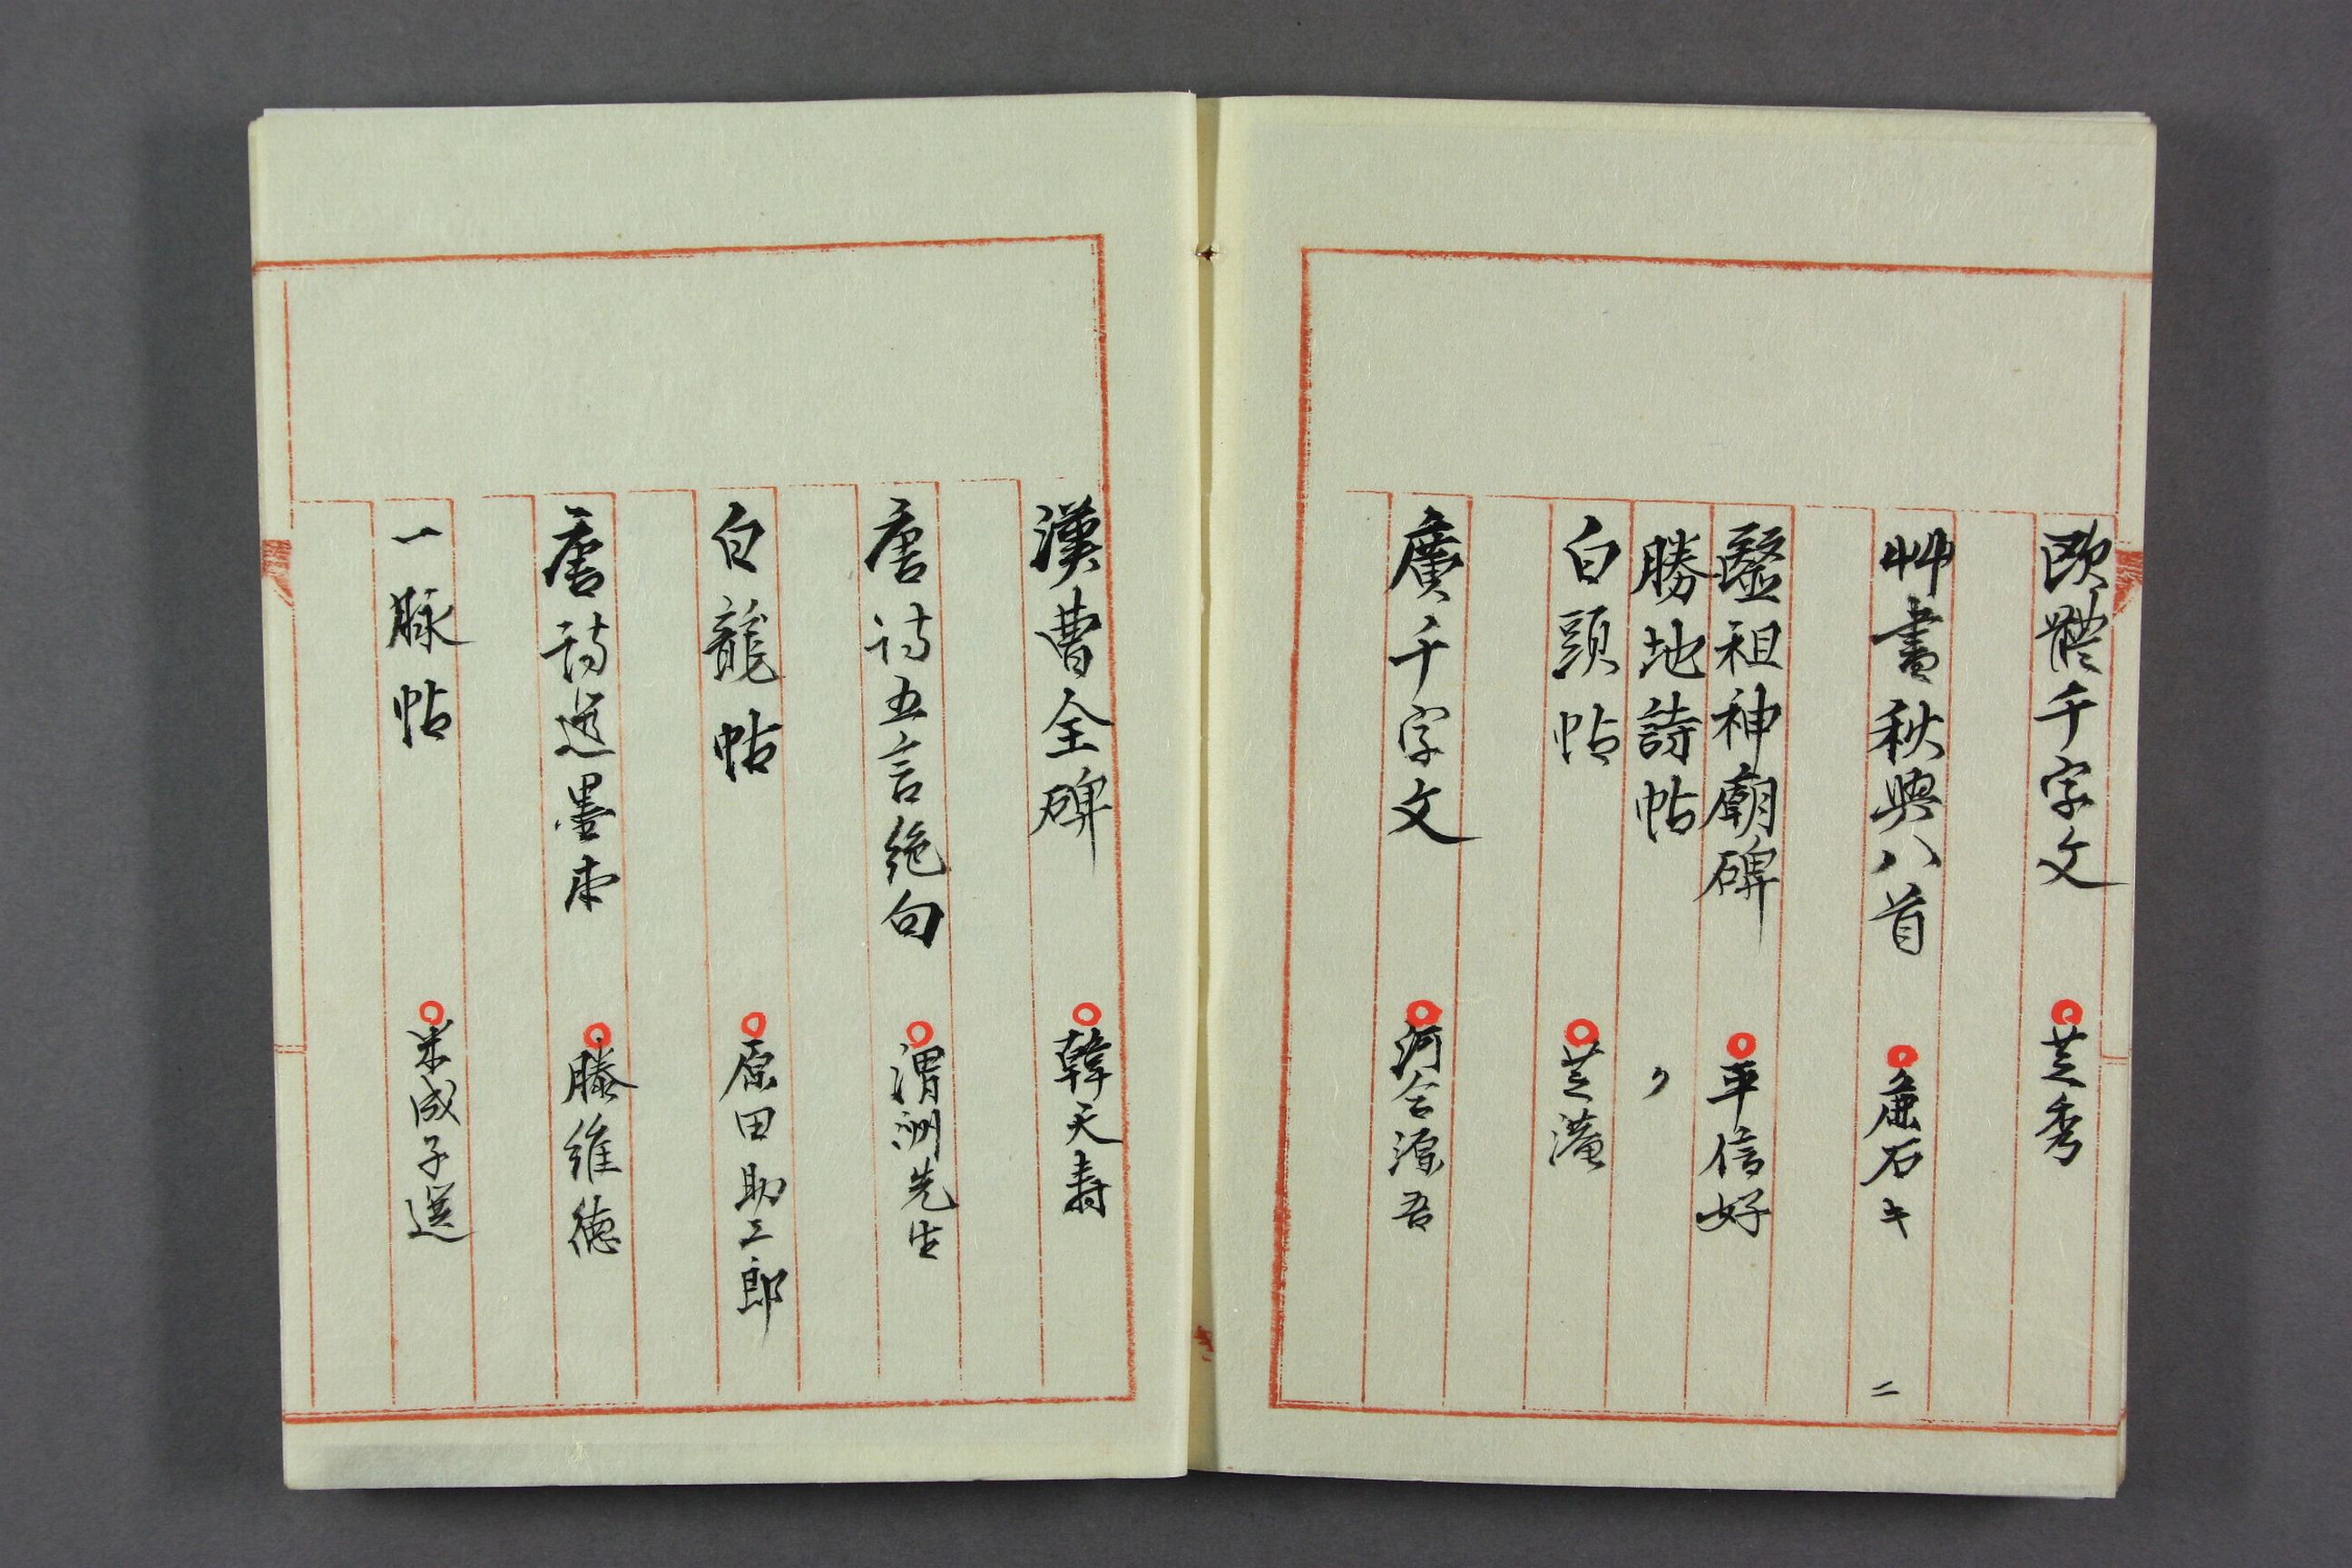 欧體千字文 芝秀
艸書秋興八首 石キ 二
毉祖神廟碑 平信好
勝地詩帖 〃
白頭帖 芝滝
廣千字文 河合源吾
漢曹全碑 韓天寿
唐诗五言絶句 渭洲先生
白龍帖 原田助三郎
唐诗選墨本 滕維徳
一脉帖 米成子選